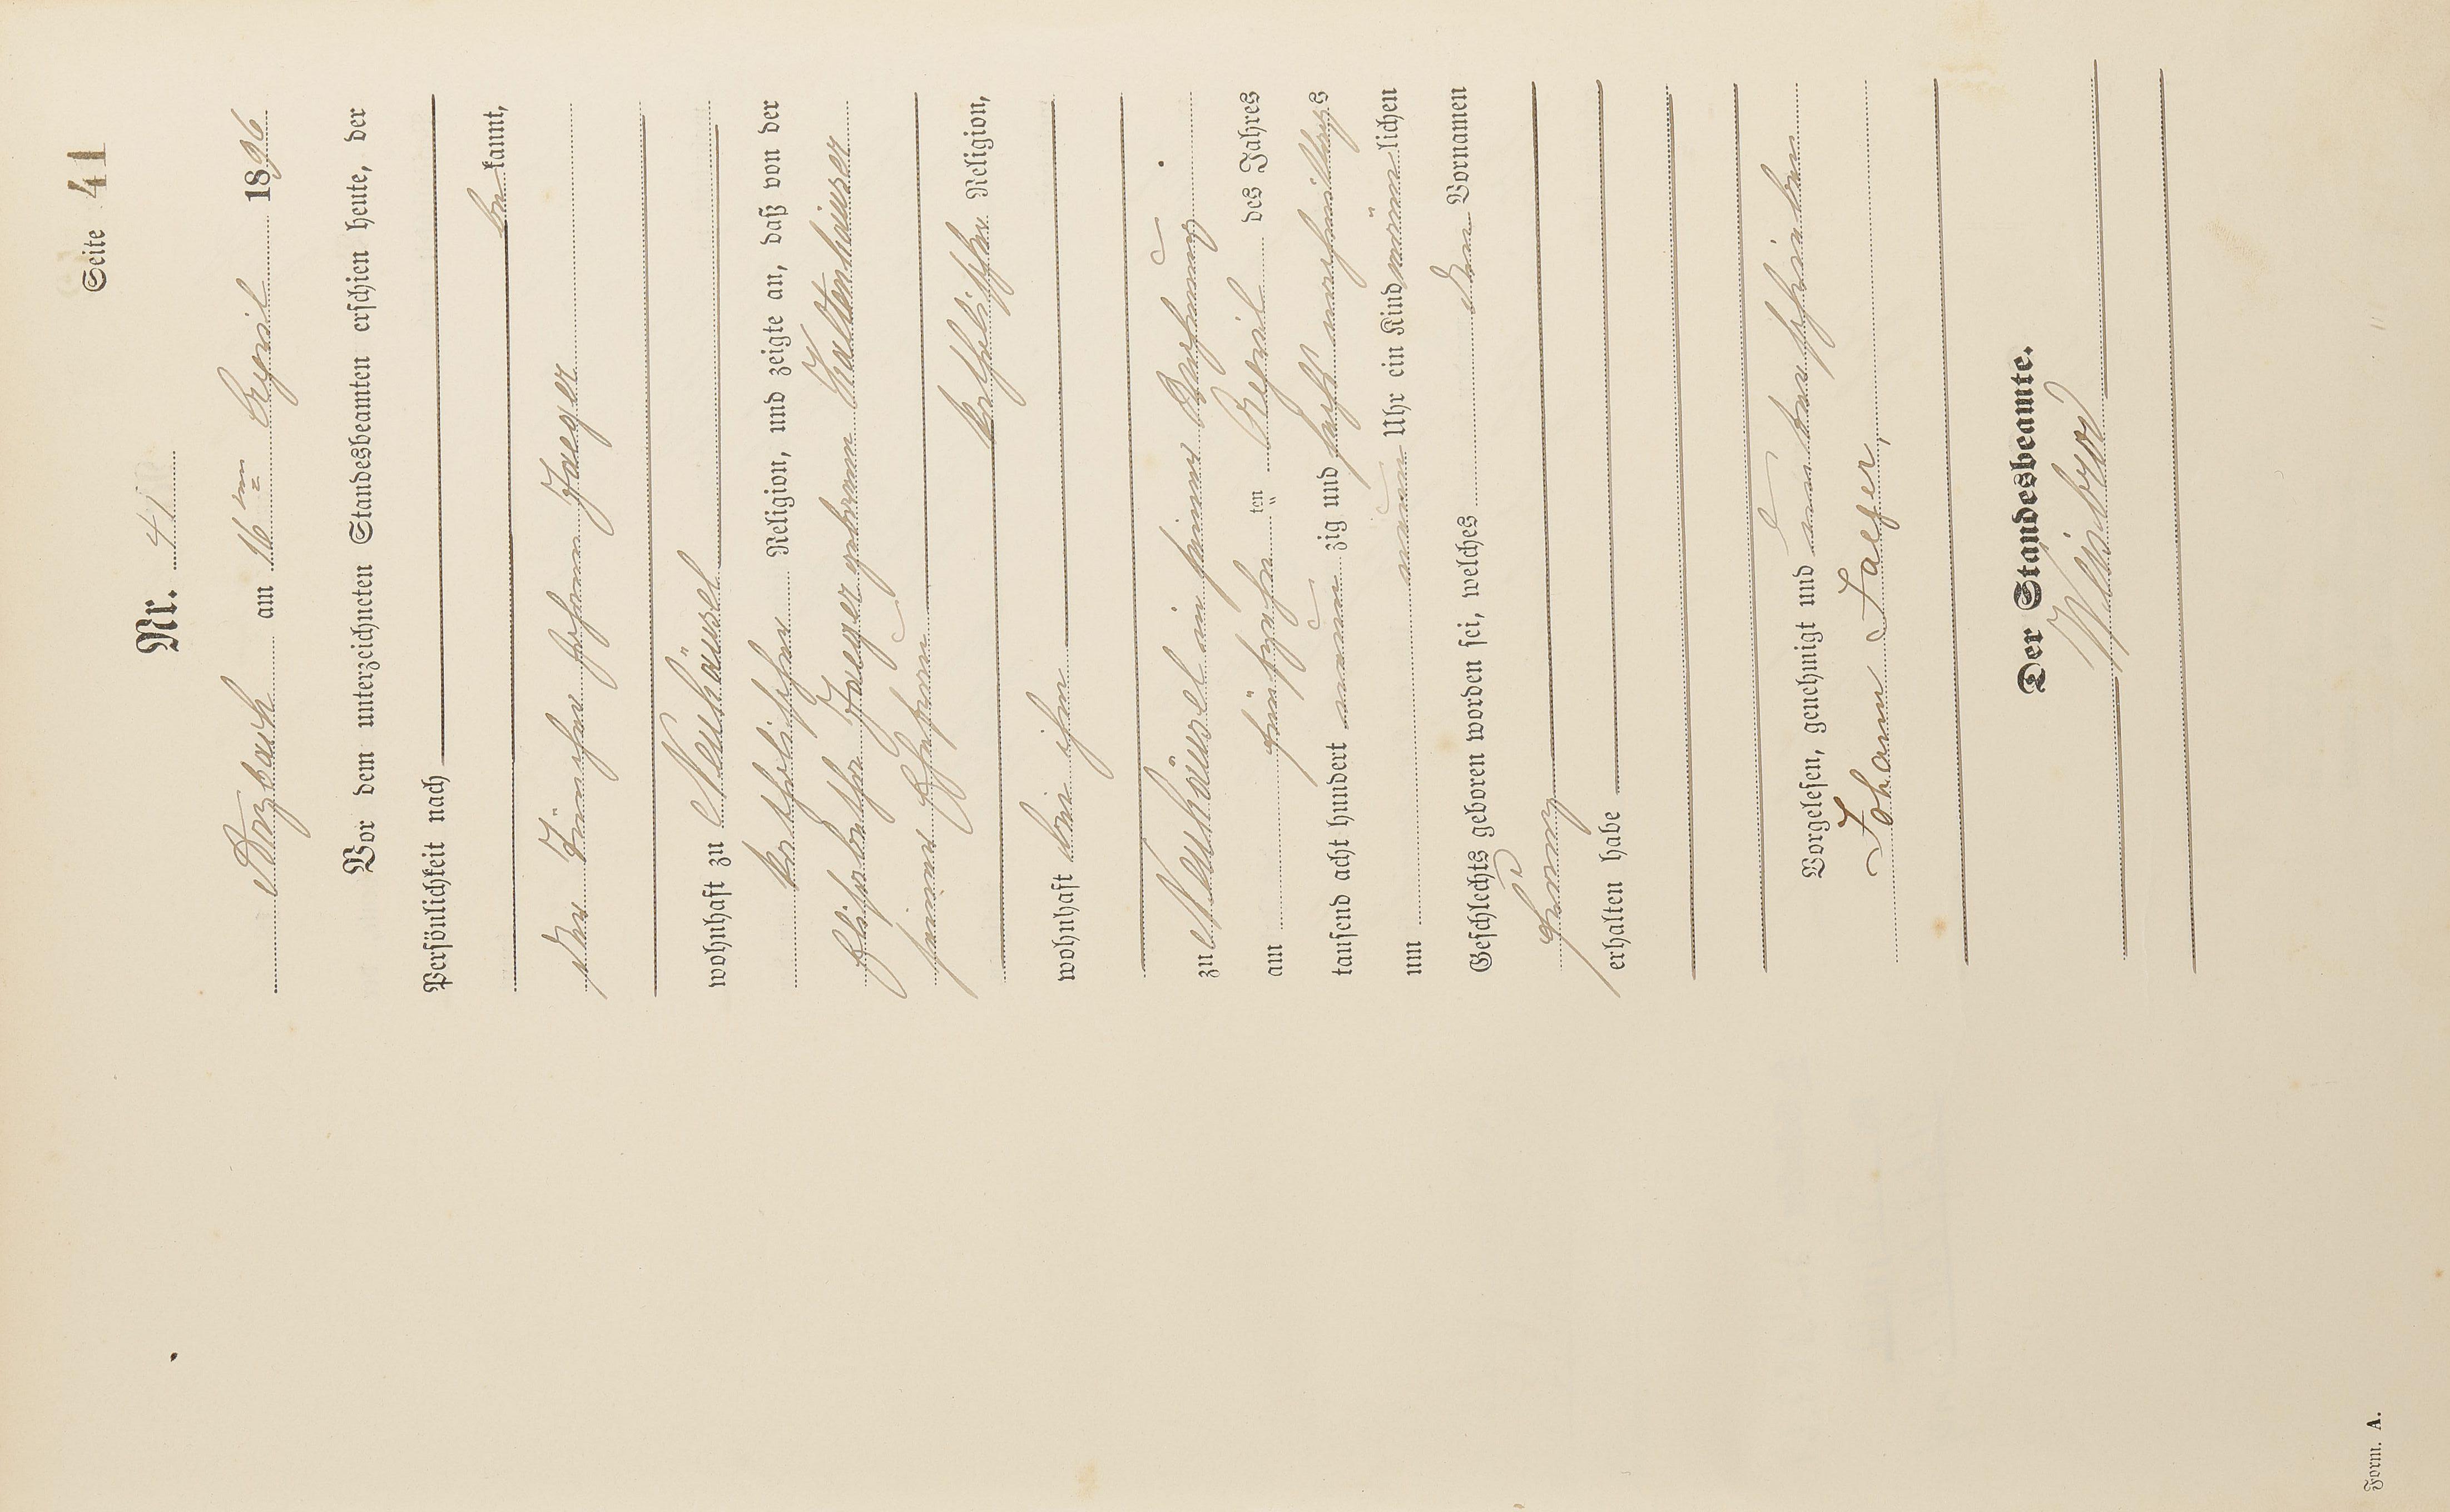 Seite 41
Nr. 41
Arzbach am 16ten April 1896
Vor dem unterzeichneten Standesbeamten erschien heute, der
Persönlichkeit nach
bekannt,
der Tüncher Johann Jaeger
wohnhaft zu Neuhäusel
katholischer Religion, und zeigte an, daß von der
Elisabetha Jaeger geborenen Kaltenhäuser
seiner Ehefrau
katholischer Religion,
wohnhaft bei ihm
zu Neuhäusel in seiner Wohnung
am fünfzehnten April des Jahres
tausend acht hundert neunzig und sechs vormittags
um neun Uhr ein Kind männlichen
Geschlechts geboren worden sei, welches den Vornamen
Georg
erhalten habe
Vorgelesen, genehmigt und unterschrieben
Johann Jaeger,
Der Standesbeamte.
Form. A.